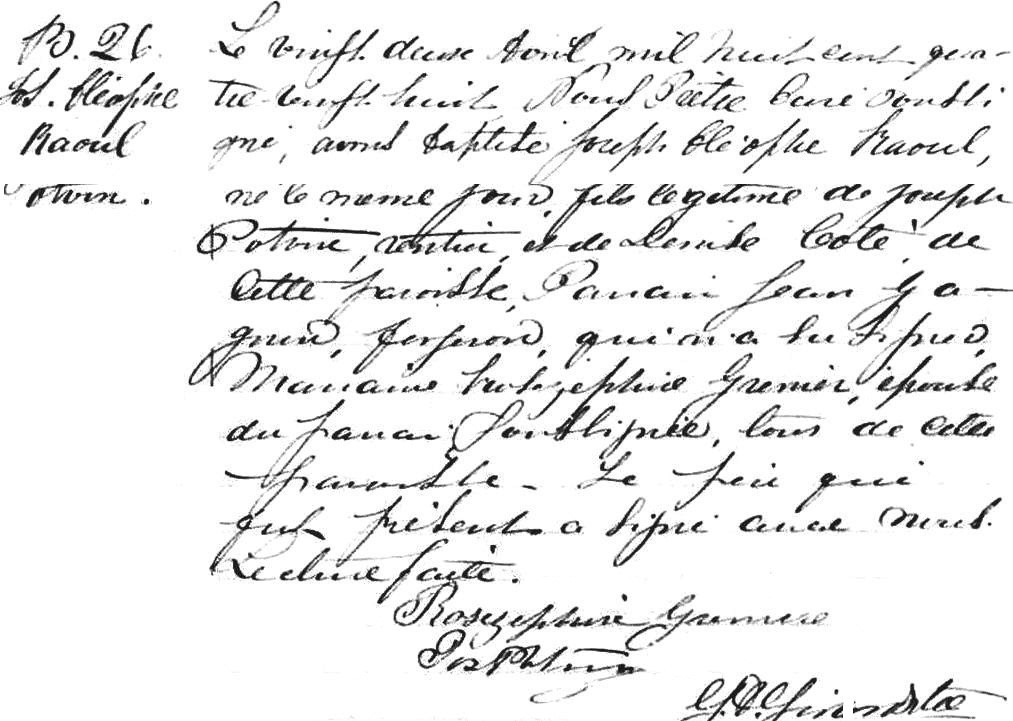 B. 26.
Jos. Cléophe
Raoul
Potvin.
Le vingt deux Avril mil huit cent qua-
tre-vingt huit Nous Prêtre Curé soussi
gné, avons baptisé Joseph Cléophe Raoul,
né le même jour, fils légitime de Joseph
Potvin, rentier, et de Denise Coté, de
cette paroisse, Parrain Jean Ga-
gnon, forgeron, qui n'a su signer,
Marraine Grenier, épouse
du parrain soussignée, tous de cette
paroisse - Le père qui
fut présent a signé avec nous.
Lecture faite.